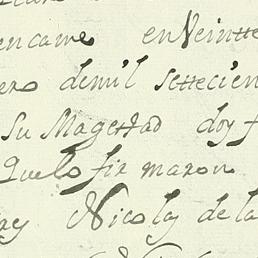 encame en Veintte
ero demil settecien
Su Magestad doy f
Quelo fir maron
rey Nicolas dela